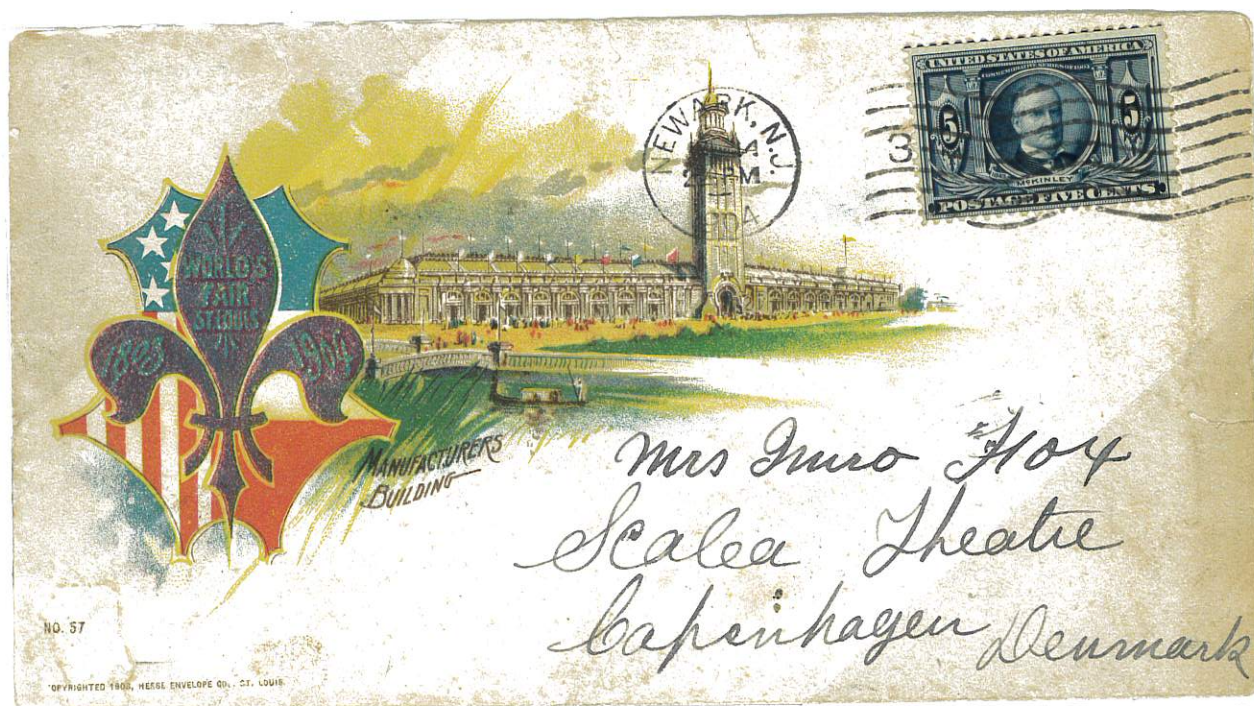 UNITED STATES OF AMERICA
COMMEMORATIVE SERIES OF 1904
5 5
McKINLEY
POSTAGE FIVE CENTS
NEWARK, N.J.
3
WORLD'S
FAIR
ST. LOUIS
1803 1904
MANUFACTURERS
BUILDING
Mrs Imro Fox
Scalea Theatre
Copenhagen Denmark
NO. 57
COPYRIGHTED 1903, HESSE ENVELOPE CO., ST. LOUIS.